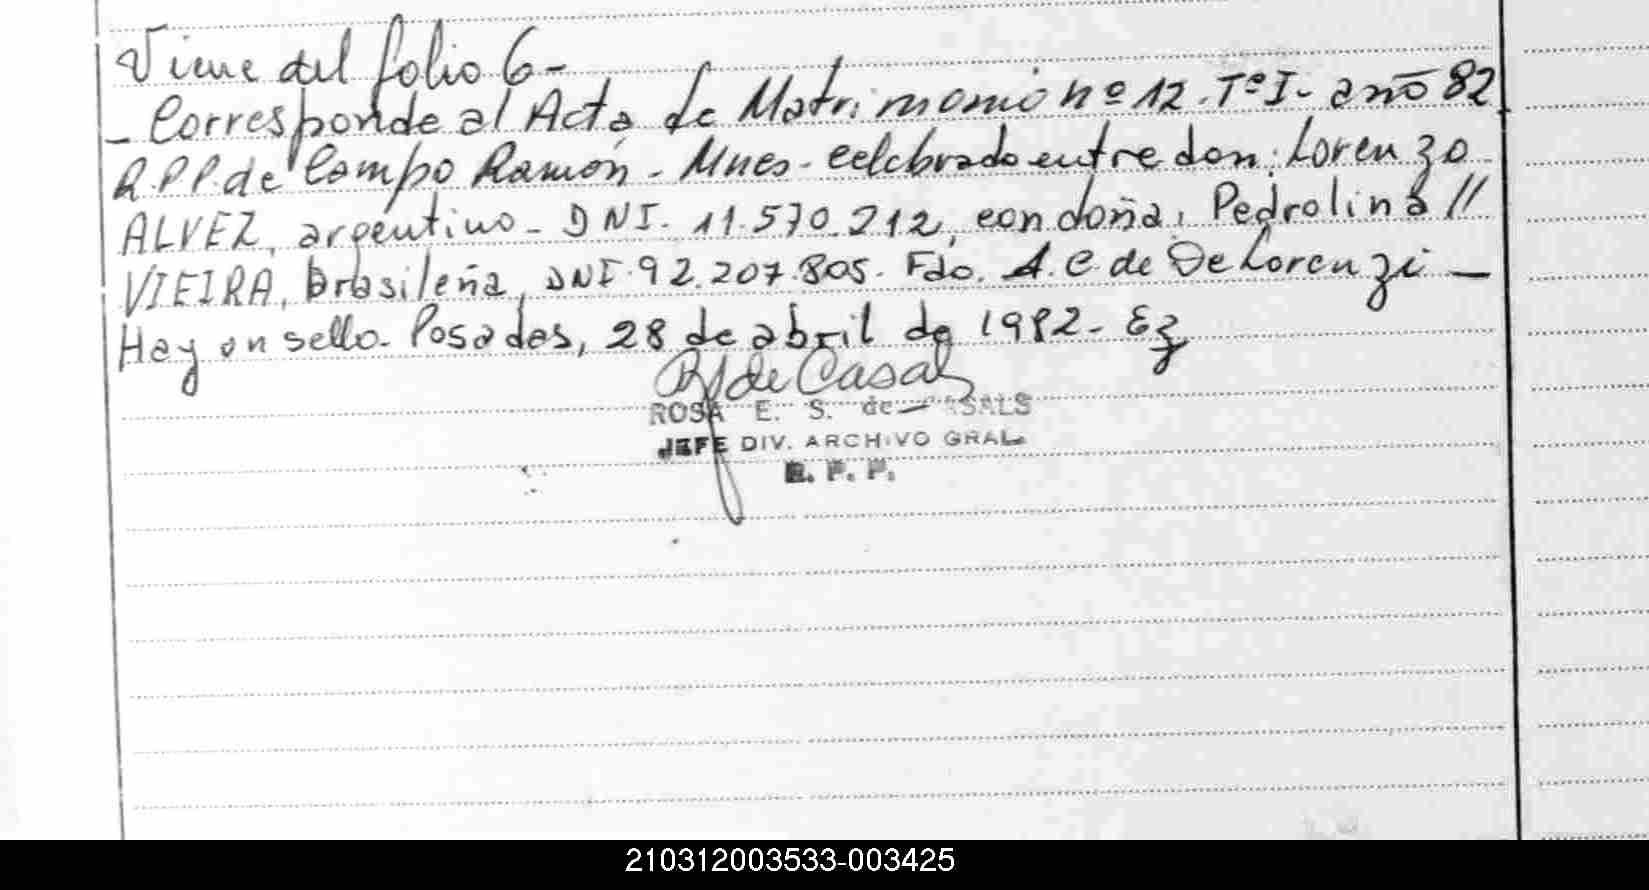 Viene del folio 6-
- Corresponde al Acta de Matrimonio nº 12. Tº I- año 82
R.P.P. de Campo Ramón - Mnes- celebrado entre don: Lorenzo
ALVEZ, argentino - DNI. 11.570.212, con doña: Pedrolina //
VIEIRA, brasileña, DNI. 92.207.805. Fdo. A. C. de De Lorenzi -
Hay un sello. Posadas, 28 de abril de 1982-
de Casals
ROSA E. S. de CASALS
JEFE DIV. ARCHIVO GRAL.
R. P. P.
210312003533-003425